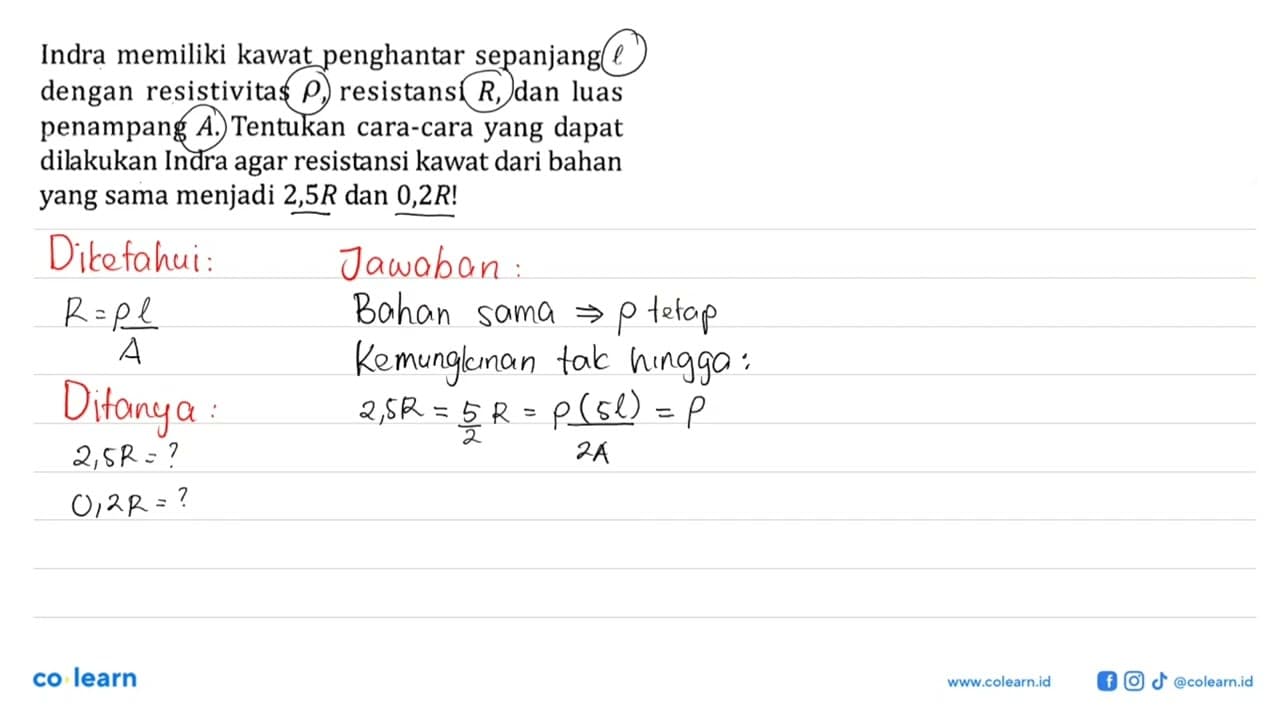 Indra memiliki kawat penghantar sepanjang ℓ
dengan resistivitas ρ, resistansi R, dan luas
penampang A. Tentukan cara-cara yang dapat
dilakukan Indra agar resistansi kawat dari bahan
yang sama menjadi 2,5R dan 0,2R!
Diketahui:
R = ρℓ/A
Ditanya:
2,5R = ?
0,2R = ?
Jawaban:
Bahan sama ⇒ ρ tetap
Kemungkinan tak hingga:
2,5R = 5/2 R = ρ(5ℓ)/2A = ρ
co learn
www.colearn.id
@colearn.id